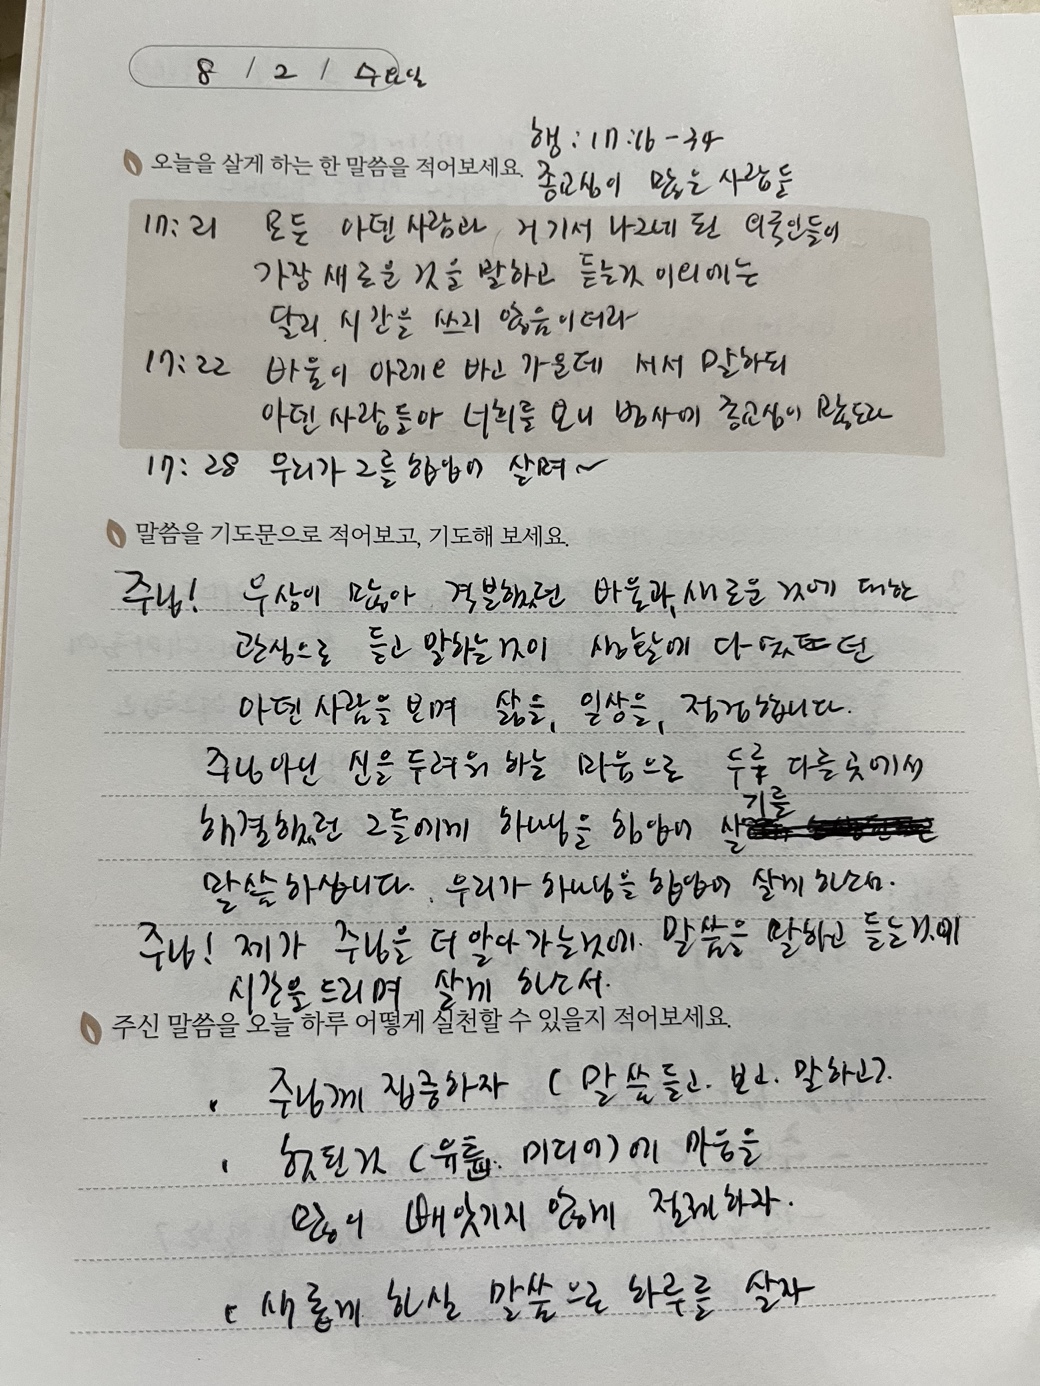 8 / 2 / 수요일
행 : 17:16-34
오늘을 살게 하는 한 말씀을 적어보세요.
종교심이 많은 사람들
17:21 모든 아덴 사람과 거기서 나그네 된 외국인들이
가장 새로운 것을 말하고 듣는것 이외에는
달리 시간을 쓰지 않음이더라
17:22 바울이 아레오바고 가운데 서서 말하되
아덴 사람들아 너희를 보니 범사에 종교심이 많도다
17:28 우리가 그를 힘입어 살며~
말씀을 기도문으로 적어보고, 기도해 보세요.
주님! 우상이 많아 격분했던 바울과, 새로운 것에 대한
관심으로 듣고 말하는것이 생활에 다였던
아덴 사람을 보며 삶을, 일상을, 점검합니다.
주님 아닌 신을 두려워 하는 마음으로 두루 다른 곳에서
해결했던 그들에게 하나님을 힘입어 살기를
말씀하십니다. 우리가 하나님을 힘입어 살게 하소서.
주님! 제가 주님을 더 알아가는것에. 말씀을 말하고 듣는것에
시간을 드리며 살게 하소서.
주신 말씀을 오늘 하루 어떻게 실천할 수 있을지 적어보세요.
· 주님께 집중하자 ( 말씀 듣고. 보고. 말하고).
· 헛된것 (유튭. 미디어)에 마음을
많이 빼앗기지 않게 절제하자.
· 새롭게 하실 말씀으로 하루를 살자